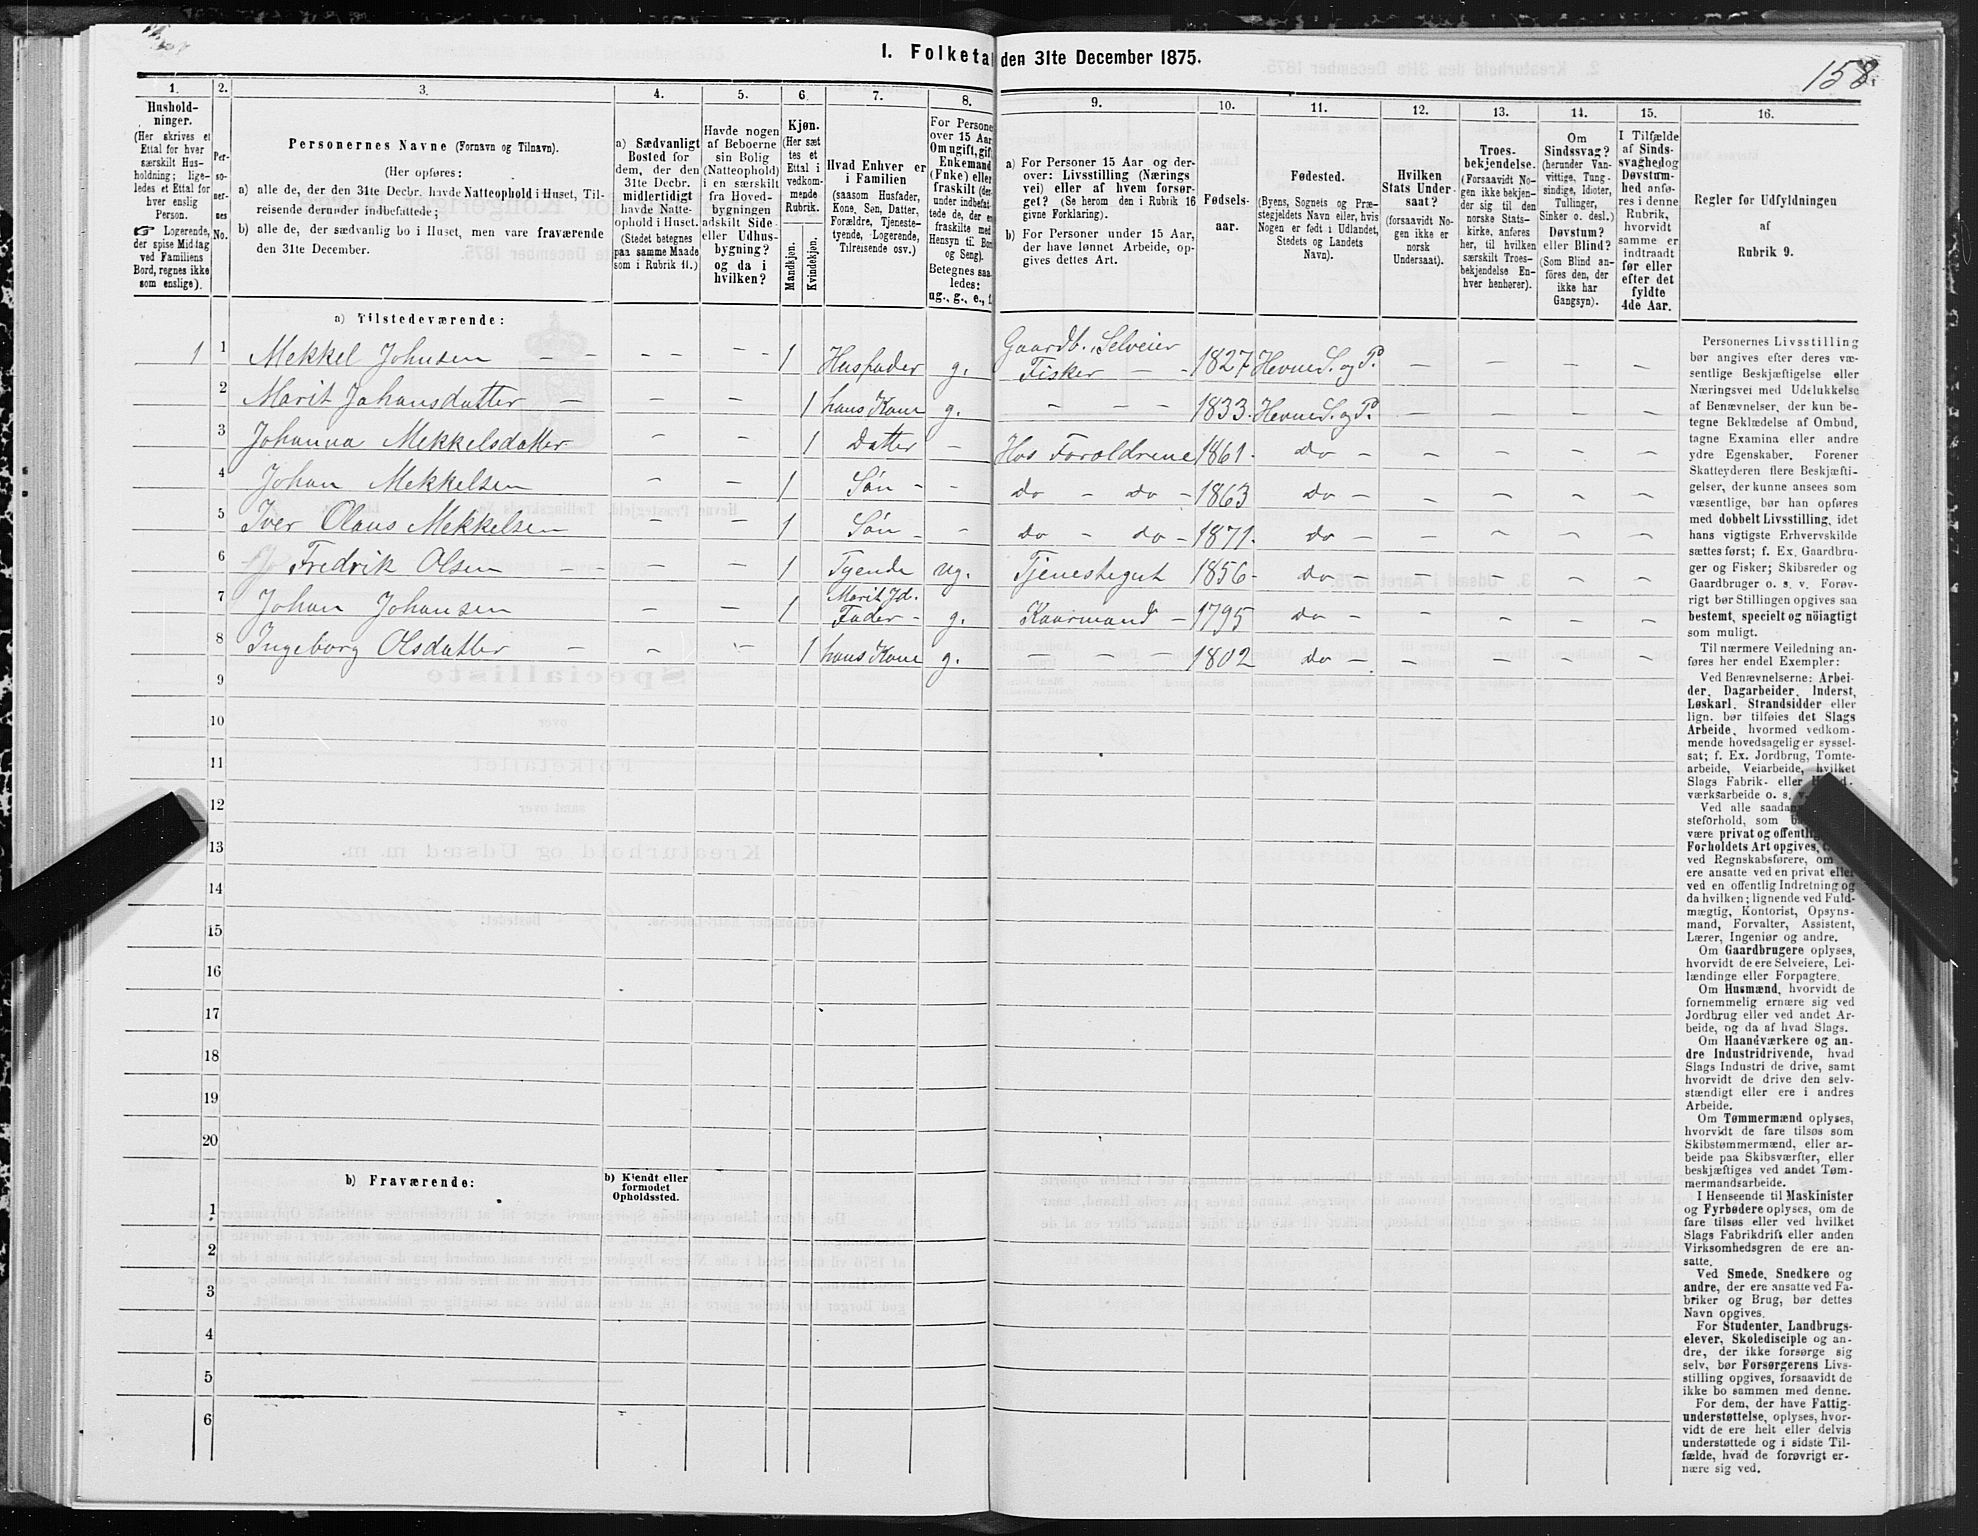 158.
I. Folketal den 31te December 1875.
1.
Hushold-
ninger.
(Her skrives et
Ettal for hver
særskilt Hus-
holdning; lige-
ledes et Ettal for
hver enslig
Person.
☞ Logerende,
der spise Middag
ved Familiens
Bord, regnes ikke
som enslige).
2.
Per-
so-
ner-
nes
No.
3.
Personernes Navne (Fornavn og Tilnavn).
(Her opføres:
a) alle de, der den 31te Decbr. havde Natteophold i Huset, Til-
reisende derunder indbefattede;
b) alle de, der sædvanlig bo i Huset, men vare fraværende
den 31te December.
4.
a) Sædvanligt
Bosted for
dem, der den
31te Decbr.
midlertidigt
havde Natte-
ophold i Huset.
(Stedet betegnes
paa samme Maade
som i Rubrik 11.)
5.
Havde nogen
af Beboerne
sin Bolig
(Natteophold)
i en særskilt
fra Hoved-
bygningen
adskilt Side-
eller Udhus-
bygning?
og da i
hvilken?
6.
Kjøn.
(Her sæt-
tes et
Ettal i
vedkom-
mende
Rubrik.
Mandkjøn.
Kvindekjøn.
7.
Hvad Enhver er
i Familien
(saasom Husfader,
Kone, Søn, Datter,
Forældre, Tjeneste-
tyende, Logerende,
Tilreisende osv.)
8.
For Personer
over 15 Aar:
Om ugift, gift,
Enkemand
(Enke) eller
fraskilt (der-
under indbefat-
tede de, der ere
fraskilte med
Hensyn til Bord
og Seng).
Betegnes saa-
ledes:
ug., g., e., f.
9.
a) For Personer 15 Aar og der-
over: Livsstilling (Nærings-
vei) eller af hvem forsør-
get? (Se herom den i Rubrik 16
givne Forklaring).
b) For Personer under 15 Aar,
der have lønnet Arbeide, op-
gives dettes Art.
10.
Fødsels-
aar.
11.
Fødested.
(Byens, Sognets og Præ-
stegjeldets Navn eller, hvis
Nogen er født i Udlandet,
Stedets og Landets
Navn).
12.
Hvilken
Stats Under-
saat?
(forsaavidt No-
gen ikke er
norsk
Undersaat).
13.
Troes-
bekjendelse.
(Forsaavidt No-
gen ikke bekjen-
der sig til den
norske Stats-
kirke, anføres
her, til hvilken
særskilt Troes-
bekjendelse En-
hver henhører).
14.
Om
Sindssvag?
(herunder Van-
vittige, Tung-
sindige, Idioter,
Tullinger,
Sinker o. desl.)
Døvstum?
eller Blind?
(Som Blind an-
føres den, der
ikke har
Gangsyn).
15.
I Tilfælde
af Sinds-
svaghed og
Døvstum-
hed anfø-
res i denne
Rubrik,
hvorvidt
samme er
indtraadt
før eller
efter det
fyldte
4de Aar.
16.
Regler for Udfyldningen
af
Rubrik 9.
a) Tilstedeværende:
1 1 Mekkel Johnsen – – – – – – 1 Husfader g. Gaardb. Selveier Fisker – – 1827 Hevne S. og P. – – – –
2 Marit Johansdatter – – – – 1 hans Kone g. – – – 1833. Hevne S. og P. – – – –
3 Johanna Mekkelsdatter – – 1 Datter – Hos Foroldrene 1861. do – – – – –
4 Johan Mekkelsen – – 1 Søn – – do – do – 1863 do – – – – –
5 Iver Olaus Mekkelsen – – 1 Søn – – do – do – 1871. do – – – – –
6 Fredrik Olsen – – – – 1 Tyende ug. Tjenestegut 1856 – do – – – – –
7 Johan Johansen – – 1 Marit Jd. Fader – g. Kaarmand – 1795 do – – – – –
8 Ingeborg Olsdatter – – – 1 hans Kone g. – – – 1802 do – – – – –
9
10
11
12
13
14
15
16
17
18
19
20
b) Fraværende:
b) Kjendt eller
formodet
Opholdssted.
1
2
3
4
5
6
Personernes Livsstilling
bør angives efter deres væ-
sentlige Beskjæftigelse eller
Næringsvei med Udelukkelse
af Benævnelser, der kun be-
tegne Beklædelse af Ombud,
tagne Examina eller andre
ydre Egenskaber. Forener
Skatteyderen flere Beskjæfti-
gelser, der kunne ansees som
væsentlige, bør han opføres
med dobbelt Livsstilling, idet
hans vigtigste Erhvervskilde
sættes først; f. Ex. Gaardbru-
ger og Fisker; Skibsreder og
Gaardbruger o. s. v. Forøv-
rigt bør Stillingen opgives saa
bestemt, specielt og nöiagtigt
som muligt.
Til nærmere Veiledning an-
føres her endel Exempler:
Ved Benævnelserne: Arbei-
der, Dagarbeider, Inderst,
Løskarl, Strandsidder eller
lign. bør tilføies det Slags
Arbeide, hvormed vedkom-
mende hovedsagelig er syssel-
sat; f. Ex. Jordbrug, Tomte-
arbeide, Veiarbeide, hvilket
Slags Fabrik- eller
værksarbeide o. s.
Ved alle
steforhold, som
være privat og
Forholdets Art opgives,
ved Regnskabsførere, om
ere ansatte ved en privat eller
ved en offentlig Indretning og
da hvilken; lignende ved Fuld-
mægtig, Kontorist, Opsyns-
mand, Forvalter, Assistent,
Lærer, Ingeniør og andre.
Om Gaardbrugere oplyses,
hvorvidt de ere Selveiere, Lei-
lændinge eller Forpagtere.
Om Husmænd, hvorvidt de
fornemmelig ernære sig ved
Jordbrug eller ved andet Ar-
beide, og da af hvad Slags.
Om Haandværkere og an-
dre Industridrivende, hvad
Slags Industri de drive, samt
hvorvidt de drive den selv-
stændigt eller ere i andres
Arbeide.
Om Tømmermænd oplyses,
hvorvidt de fare tilsøs som
Skibstømmermænd, eller ar-
beide paa Skibsværfter, eller
beskjæftiges ved andet Tøm-
mermandsarbeide.
I Henseende til Maskinister
og Fyrbødere oplyses, om de
fare tilsøs eller ved hvilket
Slags Fabrikdrift eller anden
Virksomhedsgren de ere an-
satte.
Ved Smede, Snedkere og
andre, der ere ansatte ved Fa-
briker og Brug, bør dettes
Navn opgives.
For Studenter, Landbrugs-
elever, Skoledisciple og an-
dre, der ikke forsørge sig
selv, bør Forsørgerens Livs-
stilling opgives, forsaavidt de
ikke bo sammen med denne.
For dem, der have Fattig-
understøttelse, oplyses, hvor-
vidt de ere helt eller delvis
understøttede og i sidste Til-
fælde, hvad de forøvrigt er-
nære sig ved.